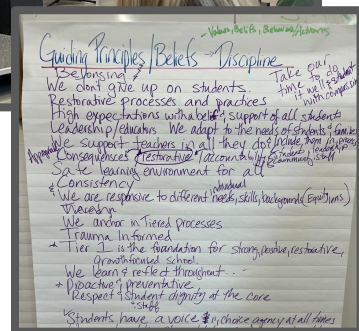 - Values, Beliefs, Behaviors/Actions
Guiding Principles/Beliefs → Discipline
Belonging
We dont give up on students.
Restorative processes and practices
High expectations with a belief & support of all students
Leadership/educators We adapt to the needs of students & families
We support teachers in all they do, include them in process
Appropriate Consequences restorative, accountability
student, leadership, community, staff
Safe learning environment for all
Consistency
individual
& We are responsive to different needs, skills, backgrounds (Equitions)
We anchor in Tiered processes
Trauma Informed
* Tier 1 is the foundation for strong, positive, restorative,
growth focused school.
We learn & reflect throughout...
* Proactive & preventative
Respect & student dignity at the core
& staff
Students have a voice & choice agency at all times
Take our
time to do
it well & student
with compassion